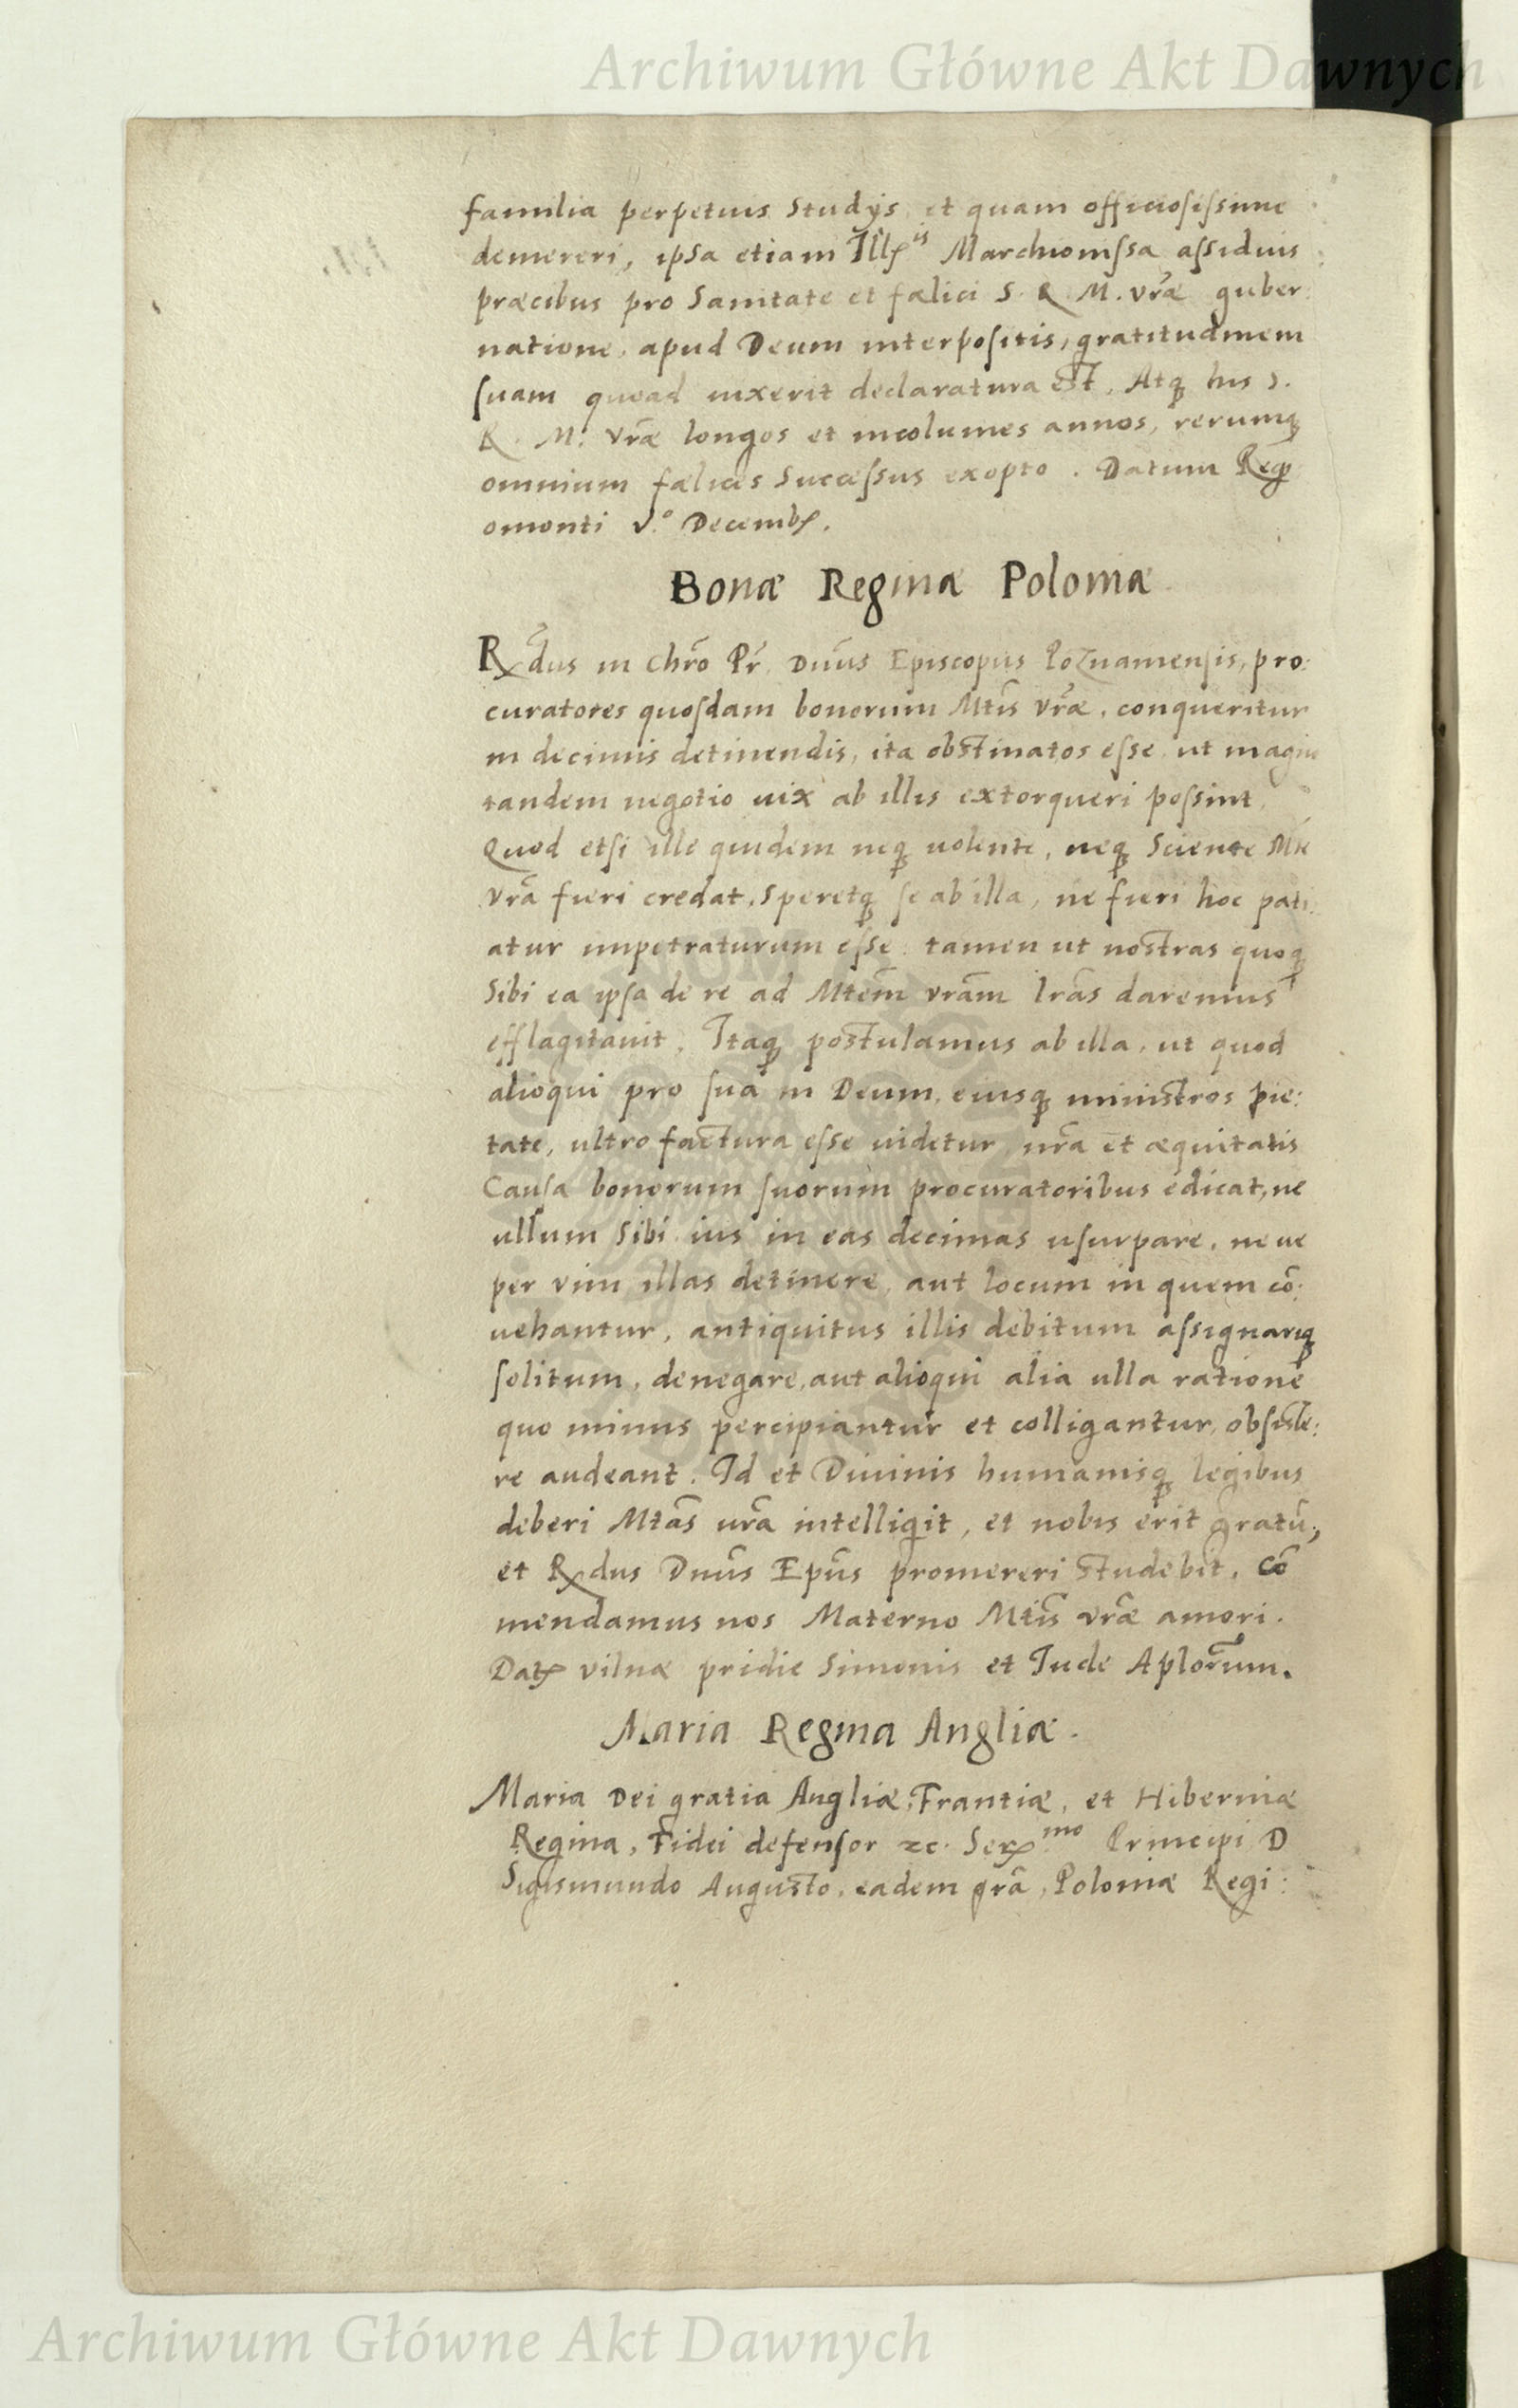 Archiwum Główne Akt Dawnych
familia perpetuis Studijs, et quam officiosissime
demereri, ipsa etiam Illꝭis Marchionissa assiduis
præcibus pro Sanitate et fælici S. R. M. vr̃æ guber:
natione, apud Deum interpositis, gratitudinem
suam quoad uixerit declaratura est. Atqꝫ his S.
R. M. vr̃æ longos et incolumes annos, rerumqꝫ
omnium fælices Successus exopto. Datum Regi
omonti V.º Decembꝭ.
Bonæ Reginæ Poloniæ
Rx̃dus in Chrõ Pr̃ Dñus Episcopus Poznaniensis, pro:
curatores quosdam bonorum Mtis̃ Vr̃æ, conqueritur
in decimis detinendis, ita obstinatos esse, ut magno
tandem negotio uix ab illis extorqueri possint.
Quod etsi ille quidem neqꝫ uolente, neqꝫ Sciente Mte
Vrã fieri credat, Speretqꝫ se ab illa, ne fieri hoc pati:
atur impetraturum esse: tamen ut nostras quoqꝫ
Sibi ea ipsa de re ad Mtem̃ vrãm lrãs daremus
efflagitauit. Itaqꝫ postulamus ab illa, ut quod
alioqui pro sua in Deum, eiusqꝫ ministros pie:
tate, ultro factura esse uidetur, nrã et æquitatis
Causa bonorum suorum procuratoribus edicat, ne
ullum Sibi ius in eas decimas usurpare, neue
per vim illas detinere, aut locum in quem cõ:
uehantur, antiquitus illis debitum assignariqꝫ
solitum, denegare, aut alioqui alia ulla ratione
quo minus percipiantur et colligantur, obsiste:
re audeant. Id et Diuinis humanisqꝫ legibus
deberi Mtas̃ urã intelligit, et nobis erit gratũ,
et Rx̃dus Dñus Epũs promereri studebit. Cõ
mendamus nos Materno Mtis̃ vræ̃ amori.
Datꝭ vilnæ pridie Simonis et Iude Aplorũm.
Maria Regina Angliæ.
Maria Dei gratia Angliæ, Frantiæ, et Hiberniæ
Regina, Fidei defensor ⁊c. Serꝭmo Principi D
Sigismundo Augusto, eadem grã, Poloniæ Regi:
Archiwum Główne Akt Dawnych